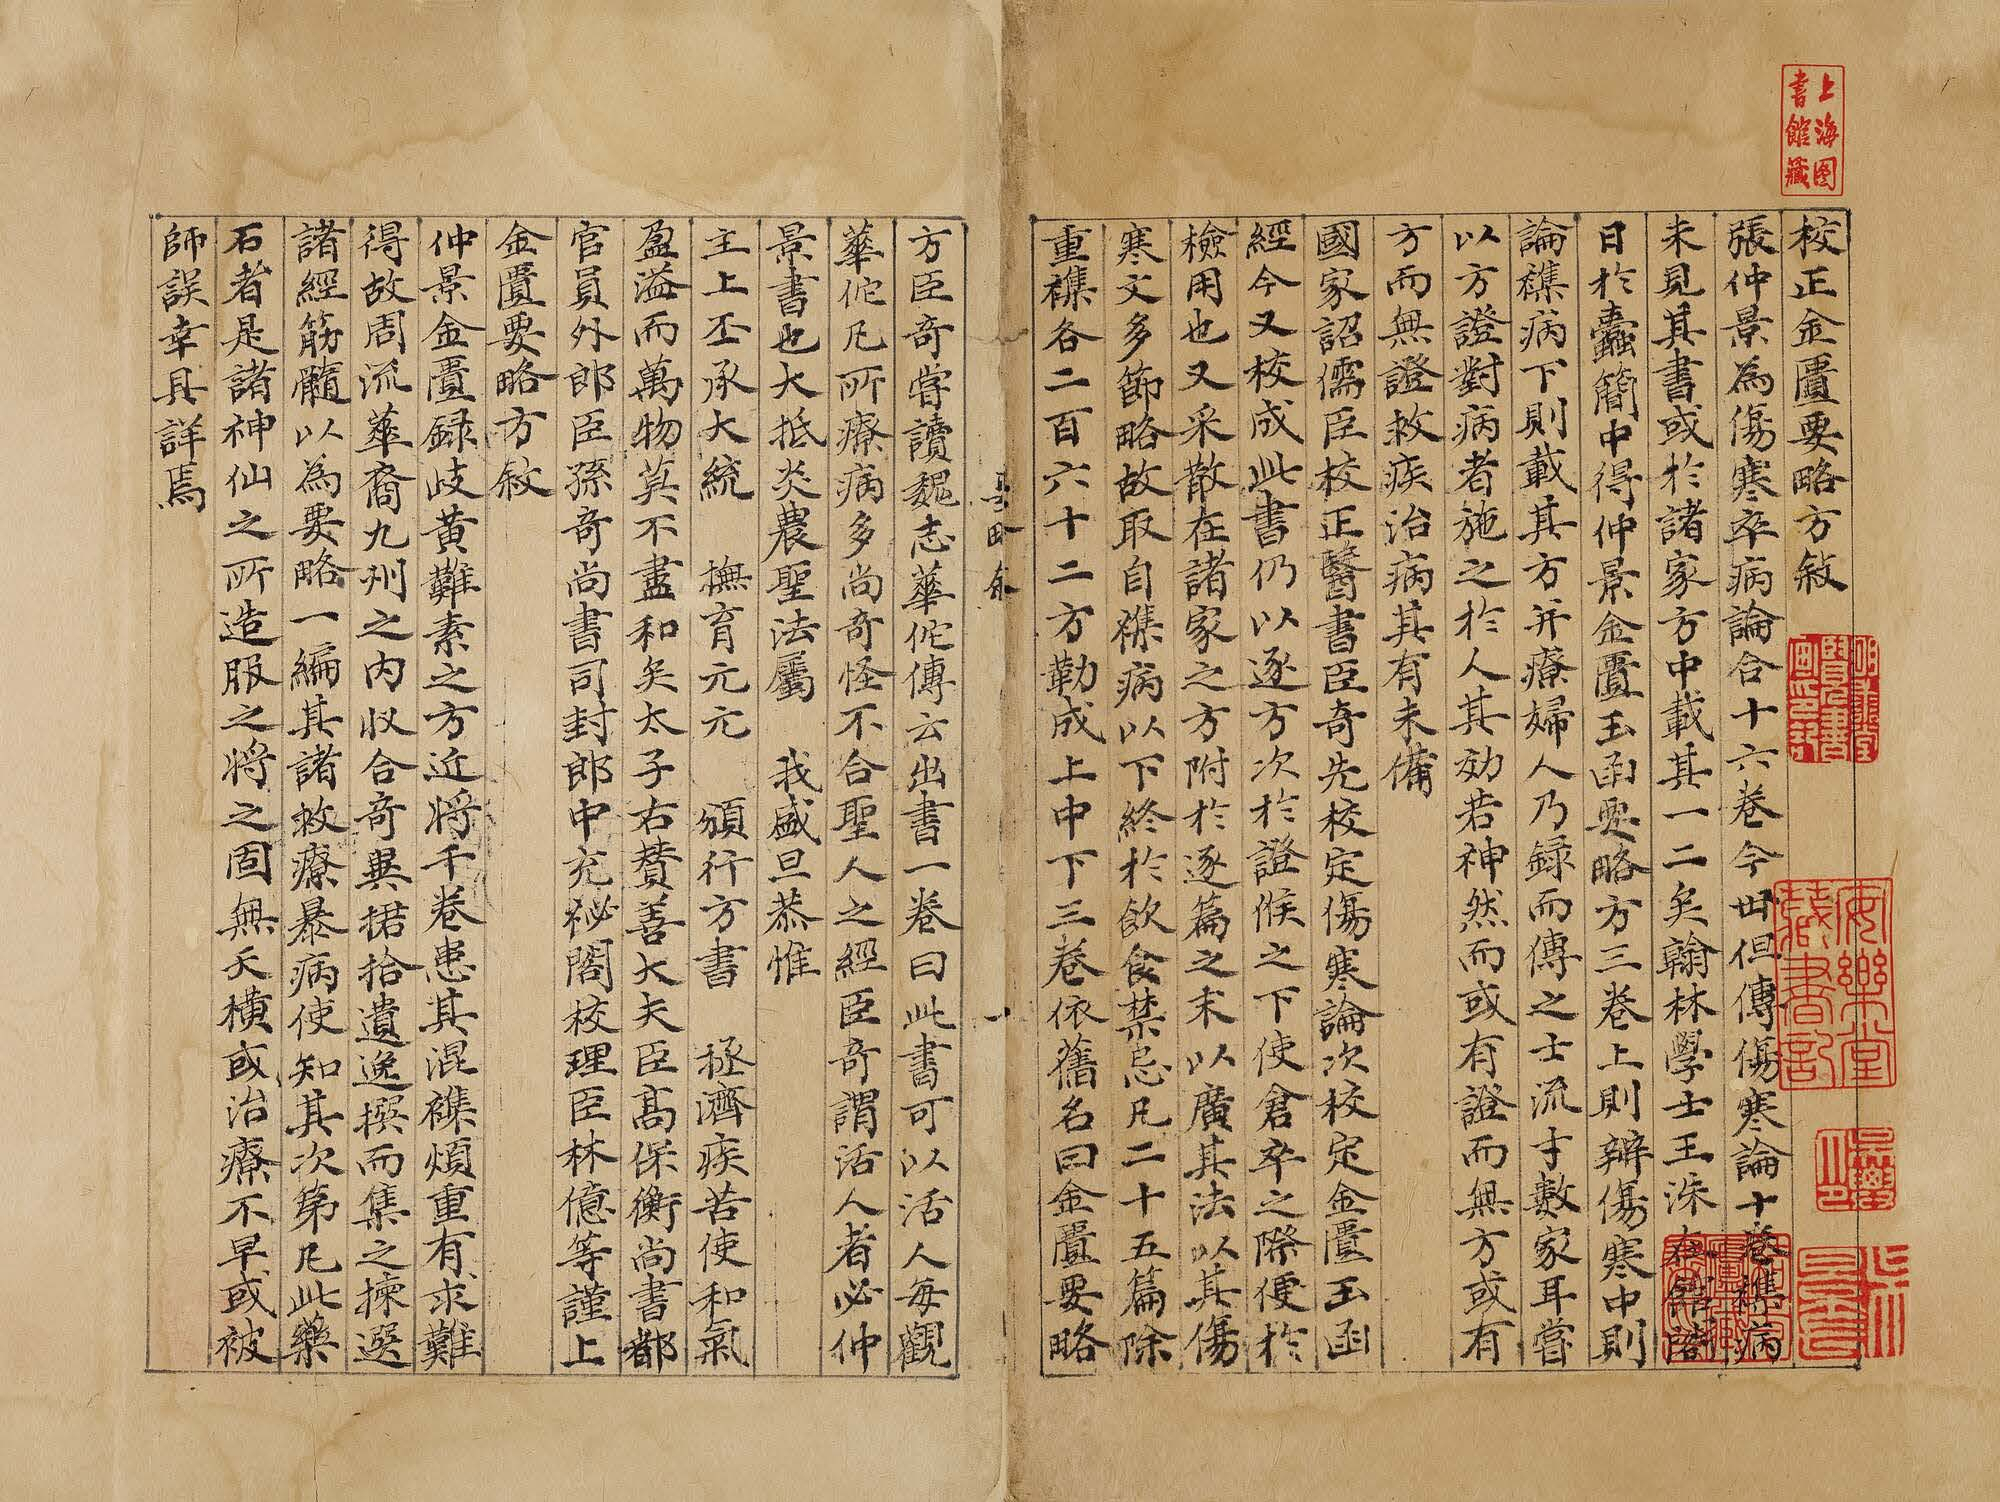 校正金匱要略方敘
張仲景為傷寒卒病論合十六卷今世但傳傷寒論十卷襍病
未見其書或於諸家方中載其一二矣翰林學士王洙在館閣
日於蠹簡中得仲景金匱玉函要略方三卷上則辨傷寒中則
論襍病下則載其方并療婦人乃録而傳之士流才數家耳嘗
以方證對病者施之於人其効若神然而或有證而無方或有
方而無證救疾治病其有未備
國家詔儒臣校正醫書臣奇先校定傷寒論次校定金匱玉函
經今又校成此書仍以逐方次於證候之下使倉卒之際便於
檢用也又采散在諸家之方附於逐篇之末以廣其法以其傷
寒文多節略故取自襍病以下終於飲食禁忌凡二十五篇除
重襍各二百六十二方勒成上中下三卷依舊名曰金匱要略
方臣奇嘗讀魏志華佗傳云出書一卷曰此書可以活人每觀
華佗凡所療病多尚奇怪不合聖人之經臣奇謂活人者必仲
景書也大抵炎農聖法屬 我盛旦恭惟
主上丕承大統 撫育元元 頒行方書 拯濟疾苦使和氣
盈溢而萬物莫不盡和矣太子右贊善大夫臣高保衡尚書都
官員外郎臣孫奇尚書司封郎中充祕閣校理臣林億等謹上
金匱要略方敘
仲景金匱録岐黃難素之方近將千卷患其混襍煩重有求難
得故周流華裔九州之內収合奇異捃拾遺逸撰而集之揀選
諸經筋髓以為要略一編其諸救療暴病使知其次第凡此藥
石者是諸神仙之所造服之將之固無夭橫或治療不早或被
師誤幸具詳焉
一
上海图
書館藏
安樂堂
藏書記